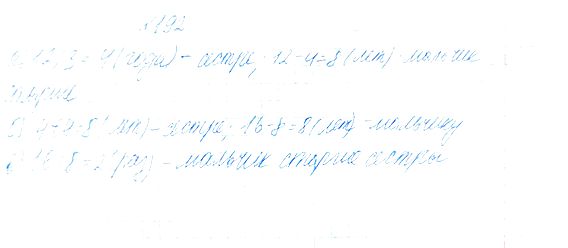 №192
а) 12:3=4 (года) - сестре; 12-4=8 (лет) - мальчик
старше
б) 4+4=8 (лет) - сестре; 16-8=8 (лет) - мальчику
в) 16:8=2 (раз) - мальчик старше сестры